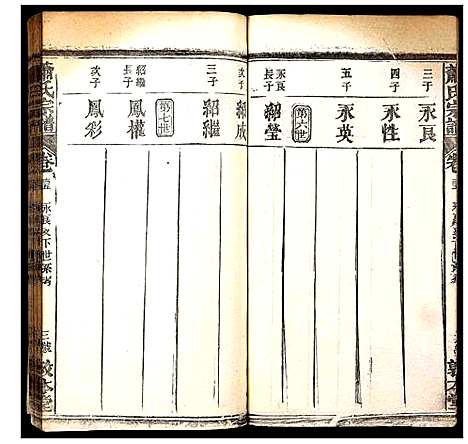 蕭氏宗譜
三子
永良
四子
永性
五子
永英
第六世
永良長子
紹瑩
次子
紹成
三子
紹繼
第七世
紹繼長子
鳳權
次子
鳳彩
蕭氏宗譜
卷
永良及下世系
敦本堂